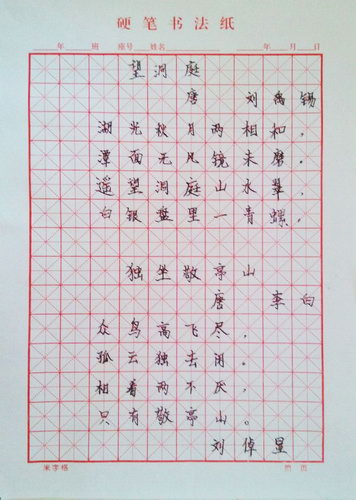 硬笔书法纸
年 班 座号 姓名 年 月 日
望洞庭
唐 刘禹锡
湖光秋月两相和，
潭面无风镜未磨。
遥望洞庭山水翠，
白银盘里一青螺。
独坐敬亭山
唐 李白
众鸟高飞尽，
孤云独去闲。
相看两不厌，
只有敬亭山。
刘倬星
米字格